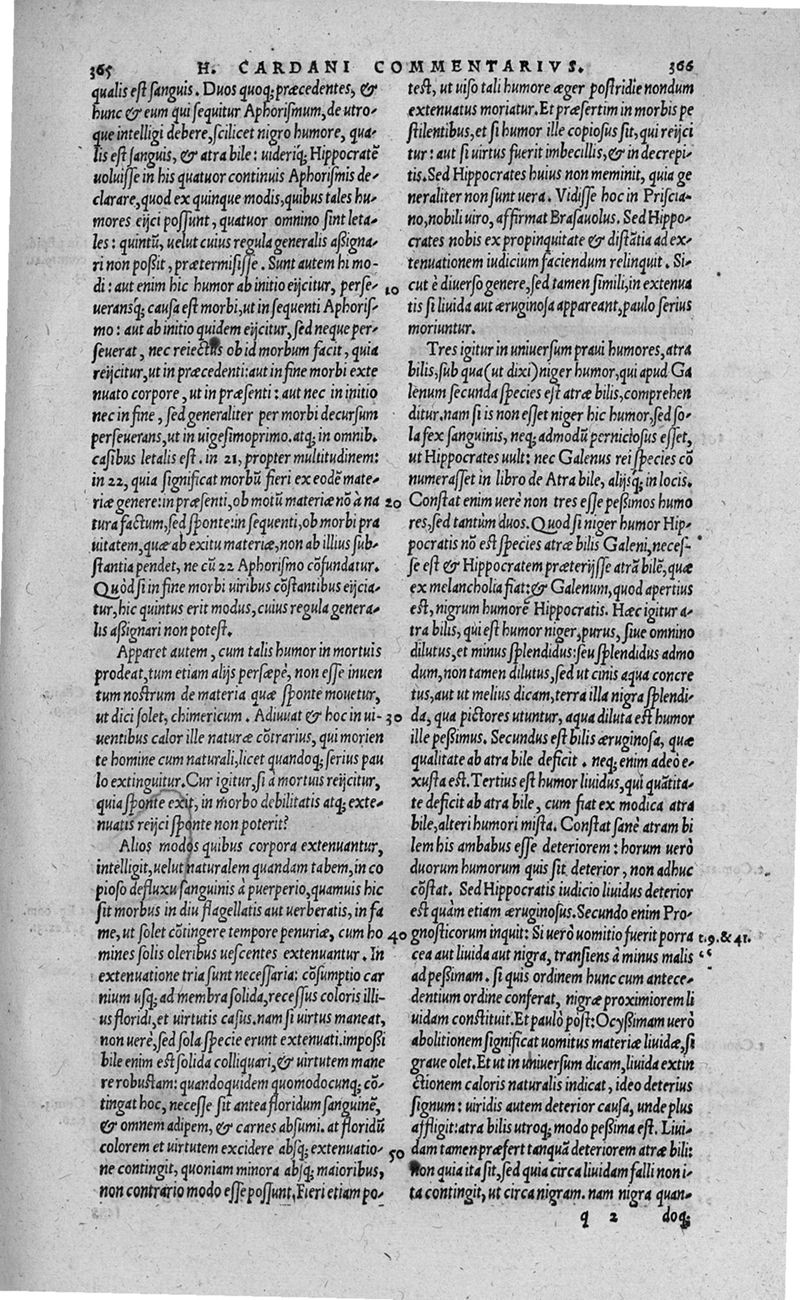 365 H. CARDANI COMMENTARIVS. 366
qualis est sanguis. Duos quoq; præcedentes, &
hunc & eum qui sequitur Aphorismum, de utro-
que intelligi debere, scilicet nigro humore, qua-
lis est sanguis, & atra bile: uideriq; Hippocratẽ
uoluisse in his quatuor continuis Aphorismis de-
clarare, quod ex quinque modis, quibus tales hu-
mores eijci possunt, quatuor omnino sint leta-
les: quintũ, uelut cuius regula generalis aßigna-
ri non poßit, prætermisisse. Sunt autem hi mo-
di: aut enim hic humor ab initio eijcitur, perse- 10
ueransq; causa est morbi, ut in sequenti Aphoris-
mo: aut ab initio quidem eijcitur, sed neque per-
seuerat, nec reiectus ob id morbum facit, quia
reijcitur, ut in præcedenti: aut in fine morbi exte
nuato corpore, ut in præsenti: aut nec in initio
nec in fine, sed generaliter per morbi decursum
perseuerans, ut in uigesimoprimo. atq; in omnib.
casibus letalis est. in 21, propter multitudinem:
in 22, quia significat morbũ fieri ex eodẽ mate-
riæ genere: in præsenti, ob motũ materiæ nõ à na 20
tura factum, sed sponte: in sequenti, ob morbi pra
uitatem, quæ ab exitu materiæ, non ab illius sub-
stantia pendet, ne cũ 22 Aphorismo cõfundatur.
Quòd si in fine morbi uiribus cõstantibus eijcia-
tur, hic quintus erit modus, cuius regula genera-
lis aßignari non potest.
Apparet autem, cum talis humor in mortuis
prodeat, tum etiam alijs persæpè, non esse inuen
tum nostrum de materia quæ sponte mouetur,
ut dici solet, chimericum. Adiuuat & hoc in ui- 30
uentibus calor ille naturæ cõtrarius, qui morien
te homine cum naturali, licet quandoq; serius pau
lo extinguitur. Cur igitur, si à mortuis reijcitur,
quia sponte exit, in morbo debilitatis atq; exte-
nuatis reijci sponte non poterit?
Alios modos quibus corpora extenuantur,
intelligit, uelut naturalem quandam tabem, in co
pioso defluxu sanguinis à puerperio, quamuis hic
sit morbus in diu flagellatis aut uerberatis, in fa
me, ut solet cõtingere tempore penuriæ, cum ho 40
mines solis oleribus uescentes extenuantur. In
extenuatione tria sunt necessaria: cõsumptio car
nium usq; ad membra solida, recessus coloris illi-
us floridi, et uirtutis casus. nam si uirtus maneat,
non uerè, sed sola specie erunt extenuati. impoßi
bile enim est solida colliquari, & uirtutem mane
re robustam: quandoquidem quomodocunq; cõ-
tingat hoc, necesse sit antea floridum sanguinẽ,
& omnem adipem, & carnes absumi. at floridũ
colorem et uirtutem excidere absq; extenuatio- 50
ne contingit, quoniam minora absq; maioribus,
non contrario modo esse possunt. Fieri etiam po-
test, ut uiso tali humore æger postridie nondum
extenuatus moriatur. Et præsertim in morbis pe
stilentibus, et si humor ille copiosus sit, qui reijci
tur: aut si uirtus fuerit imbecillis, & in decrepi-
tis. Sed Hippocrates huius non meminit, quia ge
neraliter non sunt uera. Vidisse hoc in Priscia-
no, nobili uiro, affirmat Brasauolus. Sed Hippo-
crates nobis ex propinquitate & distãtia ad ex-
tenuationem iudicium faciendum relinquit. Si-
cut è diuerso genere, sed tamen simili, in extenua
tis si liuida aut æruginosa appareant, paulo serius
moriuntur.
Tres igitur in uniuersum praui humores, atra
bilis, sub qua (ut dixi) niger humor, qui apud Ga
lenum secunda species est atræ bilis, comprehen
ditur. nam si is non esset niger hic humor, sed so-
la fex sanguinis, neq; admodũ perniciosus esset,
ut Hippocrates uult: nec Galenus rei species cõ
numerasset in libro de Atra bile, alijsq; in locis.
Constat enim uerè non tres esse peßimos humo
res, sed tantùm duos. Quod si niger humor Hip-
pocratis nõ est species atræ bilis Galeni, neces-
se est & Hippocratem præterijsse atrã bilẽ, quæ
ex melancholia fiat: & Galenum, quod apertius
est, nigrum humorẽ Hippocratis. Hæc igitur a-
tra bilis, qui est humor niger, purus, siue omnino
dilutus, et minus splendidus: seu splendidus admo
dum, non tamen dilutus, sed ut cinis aqua concre
tus, aut ut melius dicam, terra illa nigra splendi-
da, qua pictores utuntur, aqua diluta est humor
ille peßimus. Secundus est bilis æruginosa, quæ
qualitate ab atra bile deficit. neq; enim adeò e-
xusta est. Tertius est humor liuidus, qui quãtita-
te deficit ab atra bile, cum fiat ex modica atra
bile, alteri humori mista. Constat sanè atram bi
lem his ambabus esse deteriorem: horum uerò
duorum humorum quis sit deterior, non adhuc
cõstat. Sed Hippocratis iudicio liuidus deterior
est quàm etiam æruginosus. Secundo enim Pro-
gnosticorum inquit: Si uerò uomitio fuerit porra t. 9. & 41.
cea aut liuida aut nigra, transiens à minus malis
ad peßimam. si quis ordinem hunc cum antece-
dentium ordine conferat, nigræ proximiorem li
uidam constituit. Et paulò pòst: Ocyßimam uerò
abolitionem significat uomitus materiæ liuidæ, si
graue olet. Et ut in uniuersum dicam, liuida extin
ctionem caloris naturalis indicat, ideo deterius
signum: uiridis autem deterior causa, unde plus
affligit: atra bilis utroq; modo peßima est. Liui-
dam tamen præfert tanquã deteriorem atræ bili:
Non quia ita sit, sed quia circa liuidam falli non i-
ta contingit, ut circa nigram. nam nigra quan-
q 2 doq;